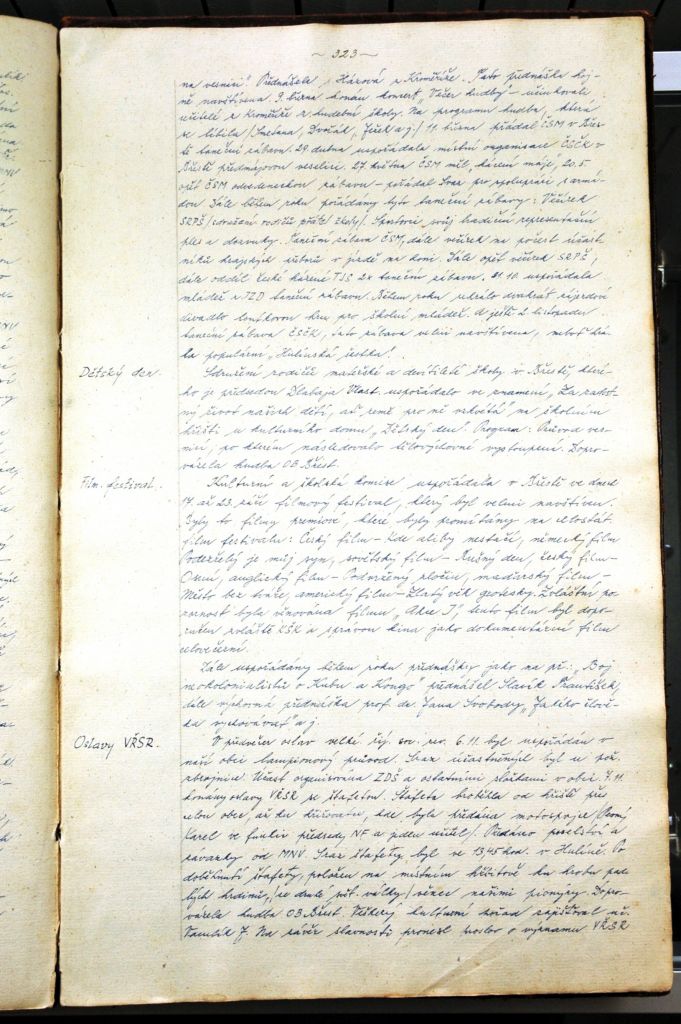 ~ 323 ~
na vesnici". Přednášela s. Házová z Kroměříže. Tato přednáška hoj-
ně navštívena. 9. března konán koncert „Večer hudby" – účinkovali
učitelé z Kroměříže z hudební školy. Na programu hudba, která
se líbila /Smetana, Dvořák, Ježek a j./ 11. března pořádal ČSM v Břes-
tě taneční zábavu. 29. dubna uspořádala místní organisace ČSČK v
Břestě předmájovou veselici. 27. května ČSM měl „kácení máje", 20.5.
opět ČSM odeslaneckou zábavu – pořádal Svaz pro spolupráci s armá-
dou. Dále během roku pořádány tyto taneční zábavy: Večírek
SRPŠ /sdružení rodičů přátel školy/. Sportovci svůj tradiční representační
ples a dozvuky. Taneční zábava ČSM, dále večírek na počest účast-
níků krajských přeborů v jízdě na koni. Dále opět večírek SRPŠ,
dále oddíl české házené TJS 2x taneční zábavu. 21.10. uspořádala
mládež z JZD taneční zábavu. Během roku sehrálo dvakrát zájezdové
divadlo loutkovou hru pro školní mládež. A ještě 2. listopadu
taneční zábava ČSČK, tato zábava velmi navštívena, neboť hrá-
la populární „Hulínská šestka".
Dětský den.
Sdružení rodičů mateřské a devítileté školy v Břestě, které-
ho je předsedou Dlabaja Vlast. uspořádalo ve znamení „Za radost-
ný život našich dětí, ať země pro ně vzkvétá" na školním
hřišti u kulturního domu „Dětský den". Program: Průvod ves-
nicí, po kterém následovalo tělovýchovné vystoupení. Dopro-
vázela hudba OB Břest.
Film. festival.
Kulturní a školská komise uspořádala v Břestě ve dnech
17. až 23. září filmový festival, který byl velmi navštíven.
Byly to filmy premiové, které byly promítány na celostát.
film. festivalu: Český film – Kde alibi nestačí, německý film
Podezřelý je můj syn, sovětský film – Rušný den, český film –
Osení, anglický film – Podvržený zločin, maďarský film –
Město bez tváře, americký film – Zlatý věk grotesky. Zvláštní po-
zornost byla věnována filmu „Akce J", tento film byl dopo-
ručen zvláště KŠK a správou kina jako dokumentární film
celovečerní.
Dále uspořádány během roku přednášky jako na př.: „Boj
neokolonialistů o Kubu a Kongo" přednášel Slavík František,
dále výchovná přednáška prof. dr. Jana Svobody „Jak člově-
ka vychovávat" a j.
Oslavy VŘSR.
V předvečer oslav velké říj. soc. rev. 6.11. byl uspořádán v
naší obci lampionový průvod. Sraz účastněných byl u pož.
zbrojnice. Účast organisována ZDŠ a ostatními složkami v obci. 7.11.
konány oslavy VŘSR se štafetou. Štafeta proběhla od hřiště přes
celou obec, až ku křižovatce, kde byla předána motospojce /Černý
Karel ve funkci předsedy NF a jeden učitel/. Předáno poselství a
závazky od MNV. Sraz štafety byl ve 13,45 hod. v Hulíně. Po
doběhnutí štafety, položen na místním hřbitově ku hrobu pad-
lých hrdinů, /ve druhé svět. války/ věnec našimi pionýry. Dopro-
vázela hudba OB Břest. Veškerý kulturní pořad zajišťoval uč.
Vaculík J. Na závěr slavnosti pronesl proslov o významu VŘSR